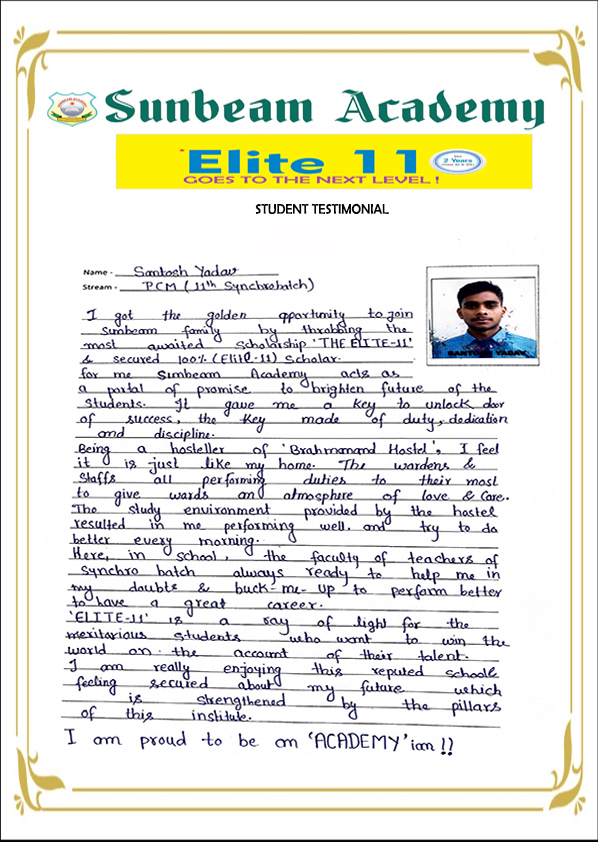 Sunbeam Academy
Elite 11
2 Years
GOES TO THE NEXT LEVEL !
STUDENT TESTIMONIAL
Name - Santosh Yadav
Stream - PCM ( 11th Synchrobatch)
I got the golden opportunity to join
Sunbeam family by throbbing the
most awaited scholarship 'THE ELITE-11'
& secured 100% (Elite-11) Scholar.
for me Sunbeam Academy acts as
a portal of promise to brighten future of the
students. It gave me a key to unlock door
of success, the key made of duty, dedication
and discipline.
Being a hosteller of 'Brahmanand Hostel', I feel
it is just like my home. The wardens &
staffs all performing duties to their most
to give wards an atmosphere of love & care.
The study environment provided by the hostel
resulted in me performing well. and try to do
better every morning.
Here, in school, the faculty of teachers of
synchro batch always ready to help me in
my doubts & buck-me-up to perform better
to have a great career.
'ELITE-11' is a ray of light for the
meritorious students who want to win the
world on the account of their talent.
I am really enjoying this reputed school
feeling secured about my future which
is strengthened by the pillars
of this institute.
I am proud to be an 'ACADEMY'ian !!
SANTOSH YADAV